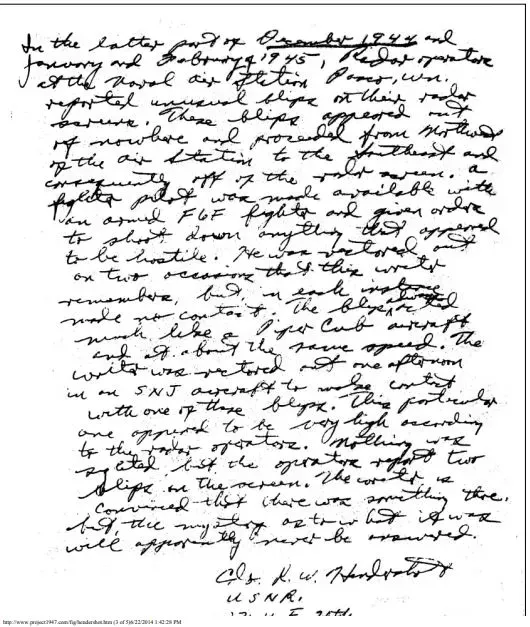 In the latter part of December 1944 and
January and February of 1945, Radar operators
at the Naval Air Station Pasco, Wn.
reported unusual blips on their radar
screens. These blips appeared out
of nowhere and proceeded from Northwest
of the Air Station to the Southeast and
consequently off of the radar screen. A
fighter pilot was made available with
an armed F6F fighter and given orders
to shoot down anything that appeared
to be hostile. He was vectored out
on two occasions that this writer
remembers, but in each instance
made no contact. The blips always acted
much like a Piper Cub aircraft
and at about the same speed. The
writer was vectored out one afternoon
in an SNJ aircraft to make contact
with one of these blips. This particular
one appeared to be very high according
to the radar operators. Nothing was
sighted but the operators report two
blips on the screen. The writer is
convinced that there was something there,
but the mystery as to what it was
will apparently never be answered.
Cdr. R. W. Hendershot
USNR.
http://www.project1947.com/fig/hendershot.htm (3 of 5)6/22/2014 1:42:28 PM